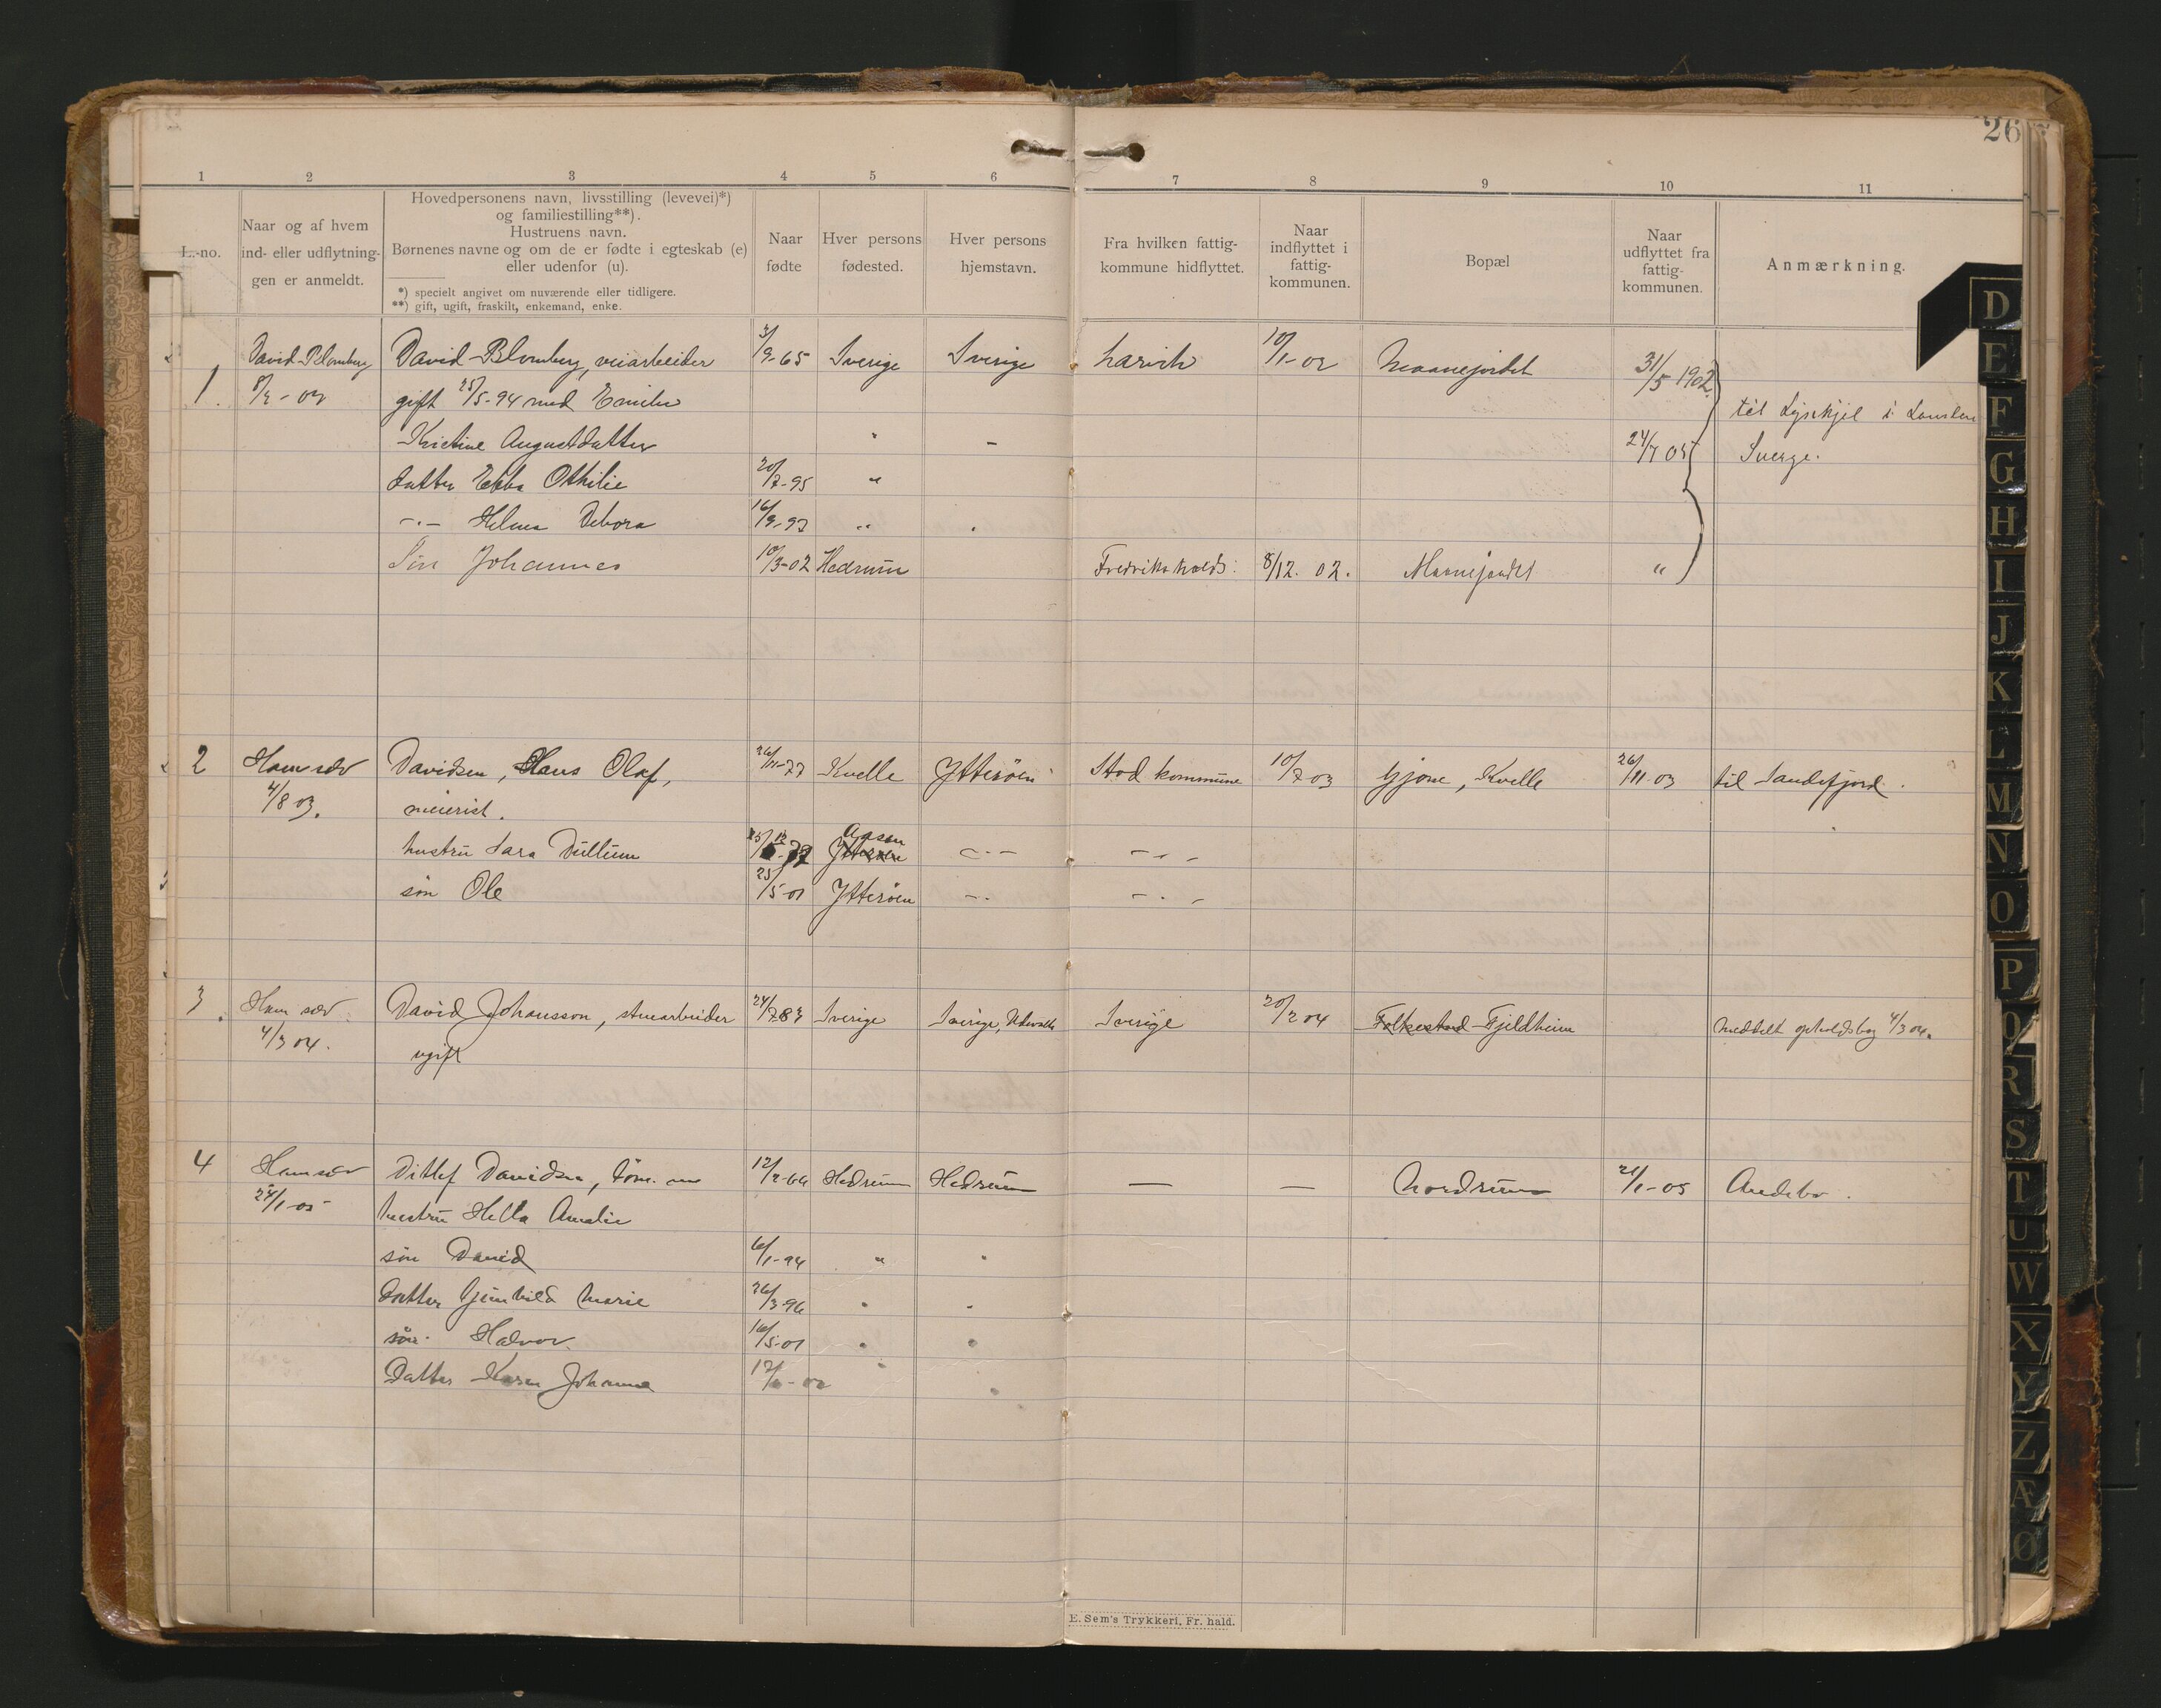 26
1 2 3 4 5 6 7 8 9 10 11
L.-no.
Naar og af hvem
ind- eller udflytning-
gen er anmeldt.
Hovedpersonens navn, livsstilling (levevei)*)
og familiestilling**).
Hustruens navn.
Børnenes navne og om de er fødte i egteskab (e)
eller udenfor (u).
*) specielt angivet om nuværende eller tidligere.
**) gift, ugift, fraskilt, enkemand, enke.
Naar
fødte
Hver persons
fødested.
Hver persons
hjemstavn.
Fra hvilken fattig-
kommune hidflyttet.
Naar
indflyttet i
fattig-
kommunen.
Bopæl
Naar
udflyttet fra
fattig-
kommunen.
Anmærkning.
1 David Blomberg David Blomberg, veiarbeider 3/9-65 Sverige Sverige Larvik 10/1-02 Maanejordet 31/5 1902
gift 25/5-94 med Emilie til Lysekjel i
Kristine Augustdatter " - 24/7 03 Sverge.
datter Ebba Othilie 20/7-95 "
-"- Helma Debora 16/9-97 "
Søn Johannes 10/3-02 Hedrum Fredrikshald: 8/12. 02. Maanejordet "
2 Ham selv Davidsen, Hans Olaf, Kvelle Ytterøen Stod kommune 10/7 03 Gjone, Kvelle 26/11-03 til Sandefjord.
4/8 03. meierist.
hustru Sara Dullum Ytterøen - " - - " -
søn Ole 25/5-01 Ytterøen - " - - " -
3. Ham selv David Johansson, stenarbeider 24/7 83 Sverige Sverige, Udevalla Sverige 20/2 04 Folkestad Fjeldheim meddelt opholdsbog 4/3 04.
4/3 04. ugift
4 Ham selv Ditlef Davidsen, 12/2-64 Hedrum Hedrum — — Nordrum 21/1-05 Andebu.
24/1-05 hustru Hella Amalie
søn David 6/1-94 " "
datter Gunhild Marie 26/3-96 " "
søn Halvor. 16/5-01 " "
Datter Karen Johanne " "
E. Sem's Trykkeri, Fr. hald.
D
E
F
G
H
I
J
K
L
M
N
O
P
Q
R
S
T
U
W
X
Y
Z
Æ
Ø